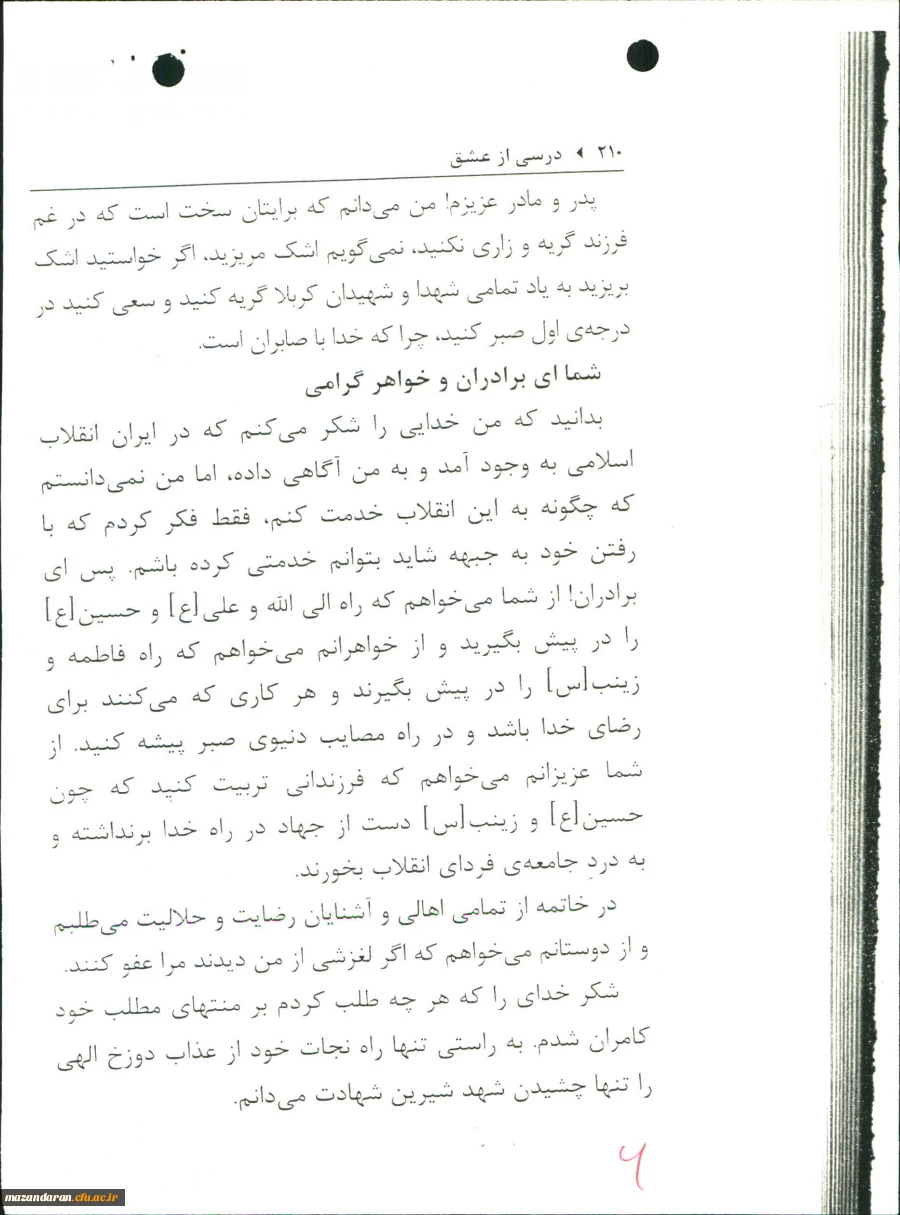 ۲۱۰ ◂ درسی از عشق
پدر و مادر عزیزم! من می‌دانم که برایتان سخت است که در غم
فرزند گریه و زاری نکنید، نمی‌گویم اشک مریزید، اگر خواستید اشک
بریزید به یاد تمامی شهدا و شهیدان کربلا گریه کنید و سعی کنید در
درجه‌ی اول صبر کنید، چرا که خدا با صابران است.
شما ای برادران و خواهر گرامی
بدانید که من خدایی را شکر می‌کنم که در ایران انقلاب
اسلامی به وجود آمد و به من آگاهی داده، اما من نمی‌دانستم
که چگونه به این انقلاب خدمت کنم، فقط فکر کردم که با
رفتن خود به جبهه شاید بتوانم خدمتی کرده باشم. پس ای
برادران! از شما می‌خواهم که راه الی الله و علی[ع] و حسین[ع]
را در پیش بگیرید و از خواهرانم می‌خواهم که راه فاطمه و
زینب[س] را در پیش بگیرند و هر کاری که می‌کنند برای
رضای خدا باشد و در راه مصایب دنیوی صبر پیشه کنید. از
شما عزیزانم می‌خواهم که فرزندانی تربیت کنید که چون
حسین[ع] و زینب[س] دست از جهاد در راه خدا برنداشته و
به دردِ جامعه‌ی فردای انقلاب بخورند.
در خاتمه از تمامی اهالی و آشنایان رضایت و حلالیت می‌طلبم
و از دوستانم می‌خواهم که اگر لغزشی از من دیدند مرا عفو کنند.
شکر خدای را که هر چه طلب کردم بر منتهای مطلب خود
کامران شدم. به راستی تنها راه نجات خود از عذاب دوزخ الهی
را تنها چشیدن شهد شیرین شهادت می‌دانم.
۶
mazandaran.cfu.ac.ir